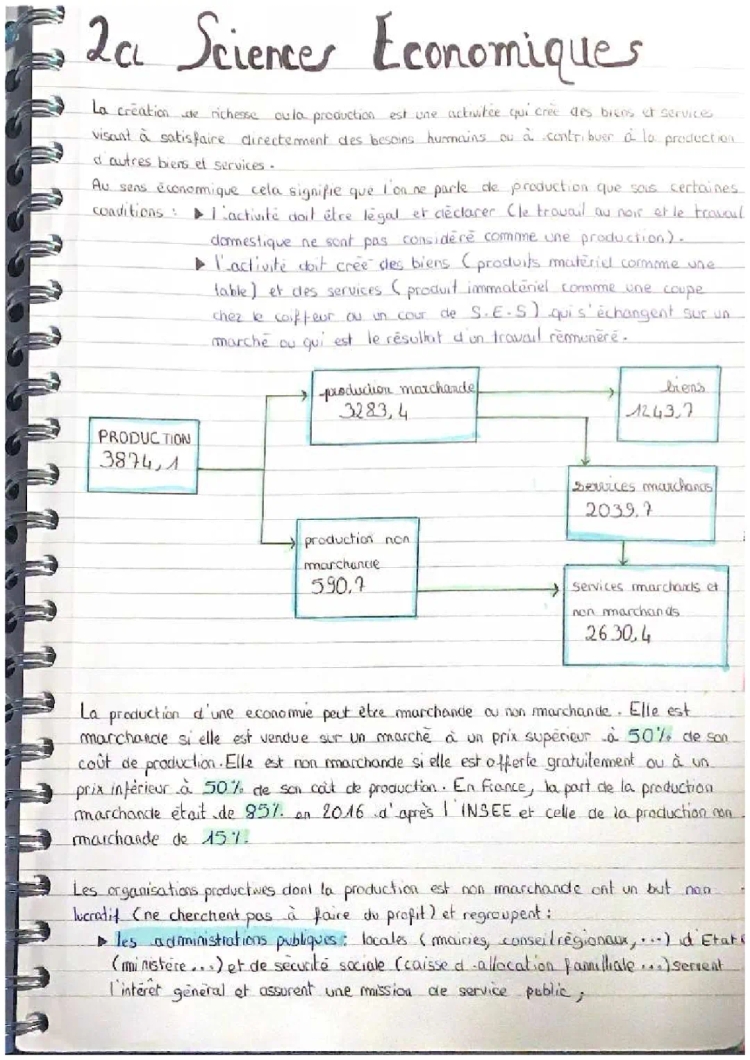 2a Sciences Economiques
La création de richesse ou la production est une activitée qui crée des biens et services
visant à satisfaire directement des besoins humains ou à contribuer à la production
d'autres biens et services.
Au sens économique cela signifie que l'on ne parle de production que sous certaines
conditions : ▶ l'activité doit être légal et déclarer (le travail au noir et le travail
domestique ne sont pas considéré comme une production).
▶ l'activité doit créé des biens (produits matériel comme une
table) et des services (produit immatériel comme une coupe
chez le coiffeur ou un cour de S.E.S) qui s'échangent sur un
marché ou qui est le résultat d'un travail rémunéré.
production marchande
3283,4
biens
1243,7
PRODUCTION
3874,1
services marchands
2039,7
production non
marchande
590,7
services marchands et
non marchands
2630,4
La production d'une economie peut être marchande ou non marchande. Elle est
marchande si elle est vendue sur un marché à un prix supérieur à 50% de son
coût de production. Elle est non marchande si elle est offerte gratuitement ou à un
prix inférieur à 50% de son coût de production. En France, la part de la production
marchande était de 85% en 2016 d'après l'INSEE et celle de la production non
marchande de 15%.
Les organisations productives dont la production est non marchande ont un but non
lucratif (ne cherchent pas à faire du profit) et regroupent :
▶ les administrations publiques : locales (mairies, conseil régionaux, ...) d'Etat
(ministère ...) et de sécurité sociale (caisse d'allocation familliale ...) servent
l'intérêt général et assurent une mission de service public ;